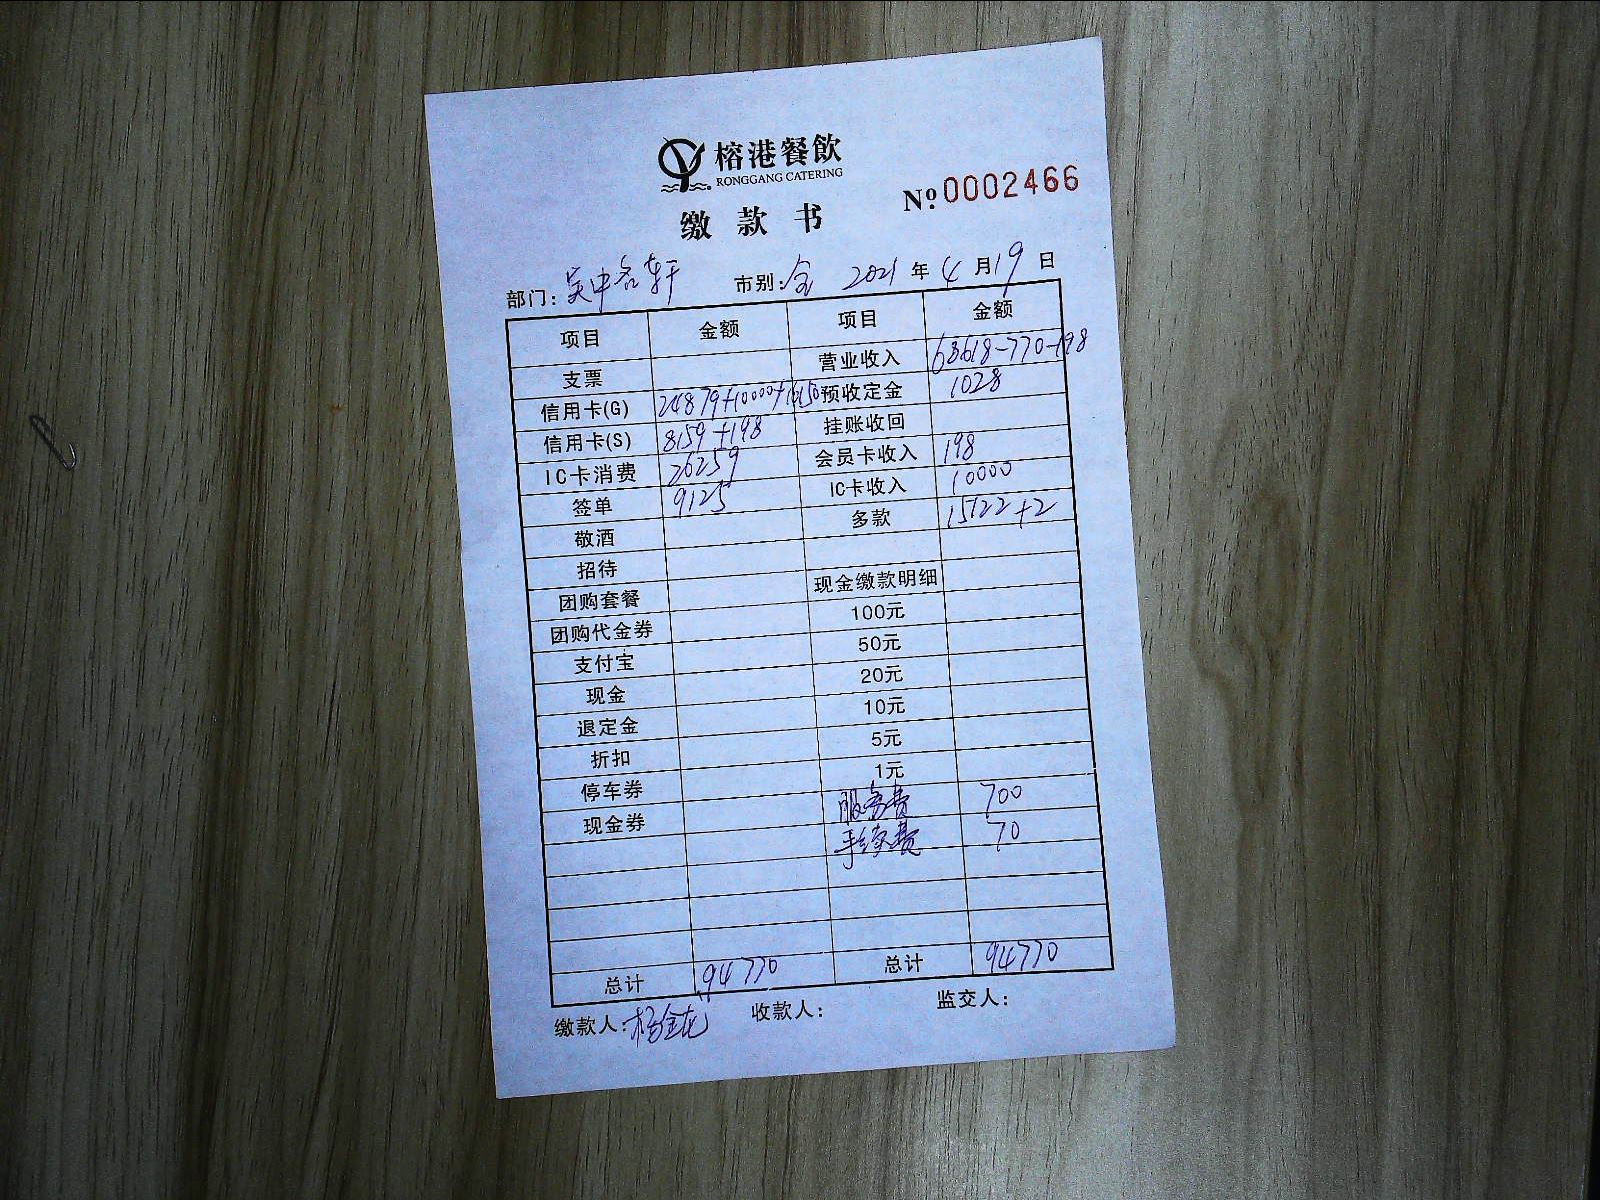 榕港餐飲
RONGGANG CATERING
№0002466
缴款书
部门：吴中名轩 市别：全 2021年4月19日
项目 金额 项目 金额
支票 营业收入 68618-770-198
信用卡(G) 24879+10000+16150 预收定金 1028
信用卡(S) 8159+198 挂账收回
IC卡消费 26259 会员卡收入 198
签单 9125 IC卡收入 10000
敬酒 多款 15122+2
招待
团购套餐 现金缴款明细
团购代金券 100元
支付宝 50元
现金 20元
退定金 10元
折扣 5元
停车券 1元
现金券 服务费 700
手续费 70
总计 94770 总计 94770
缴款人：杨金龙 收款人： 监交人：